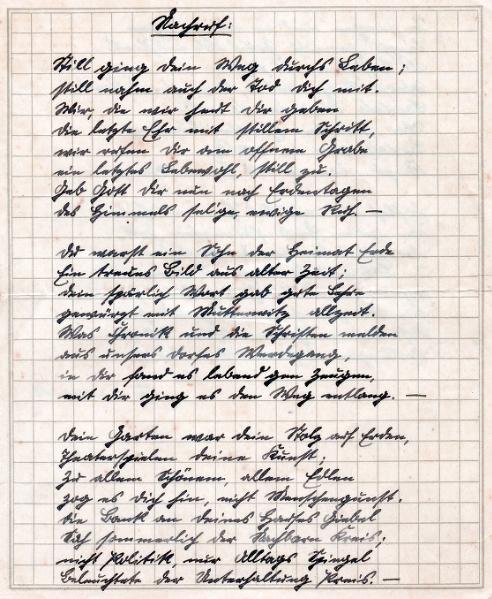 Nachruf:
Still ging dein Weg durchs Leben;
still nahm auch der Tod dich mit.
Wir, die wir heut dir geben
die letzte Ehr mit stillem Schritt,
wir rufen dir am offnem Grabe
ein letztes Lebewohl, still zu.
Geb Gott dir nun nach Erdentagen
des Himmels selige, ewige Ruh. —
Du warst ein Sohn der Heimat Erde
Ein treues Bild aus alter Zeit;
dein spärlich Wort gab gute Lehre
gewürzt mit Mutterwitz allzeit.
Was Chronik und die Schriften melden
aus unsers Dorfes Werdegang,
in dir fand es lebendgen Zeugen,
mit dir ging es den Weg entlang. —
Dein Garten war dein Stolz auf Erden,
Theaterspielen deine Kunst;
Zu allem Schönem, allem Edlen
zog es dich hin, nicht Menschengunst.
die Bank an deines Hauses Giebel
Sah sommerlich der Nachbarn Kreis;
nicht Politik, nur Alltags Spiegel
Beleuchtete der Unterhaltung Preis. —